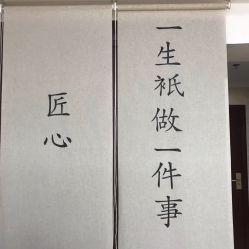 一生衹做一件事
匠心